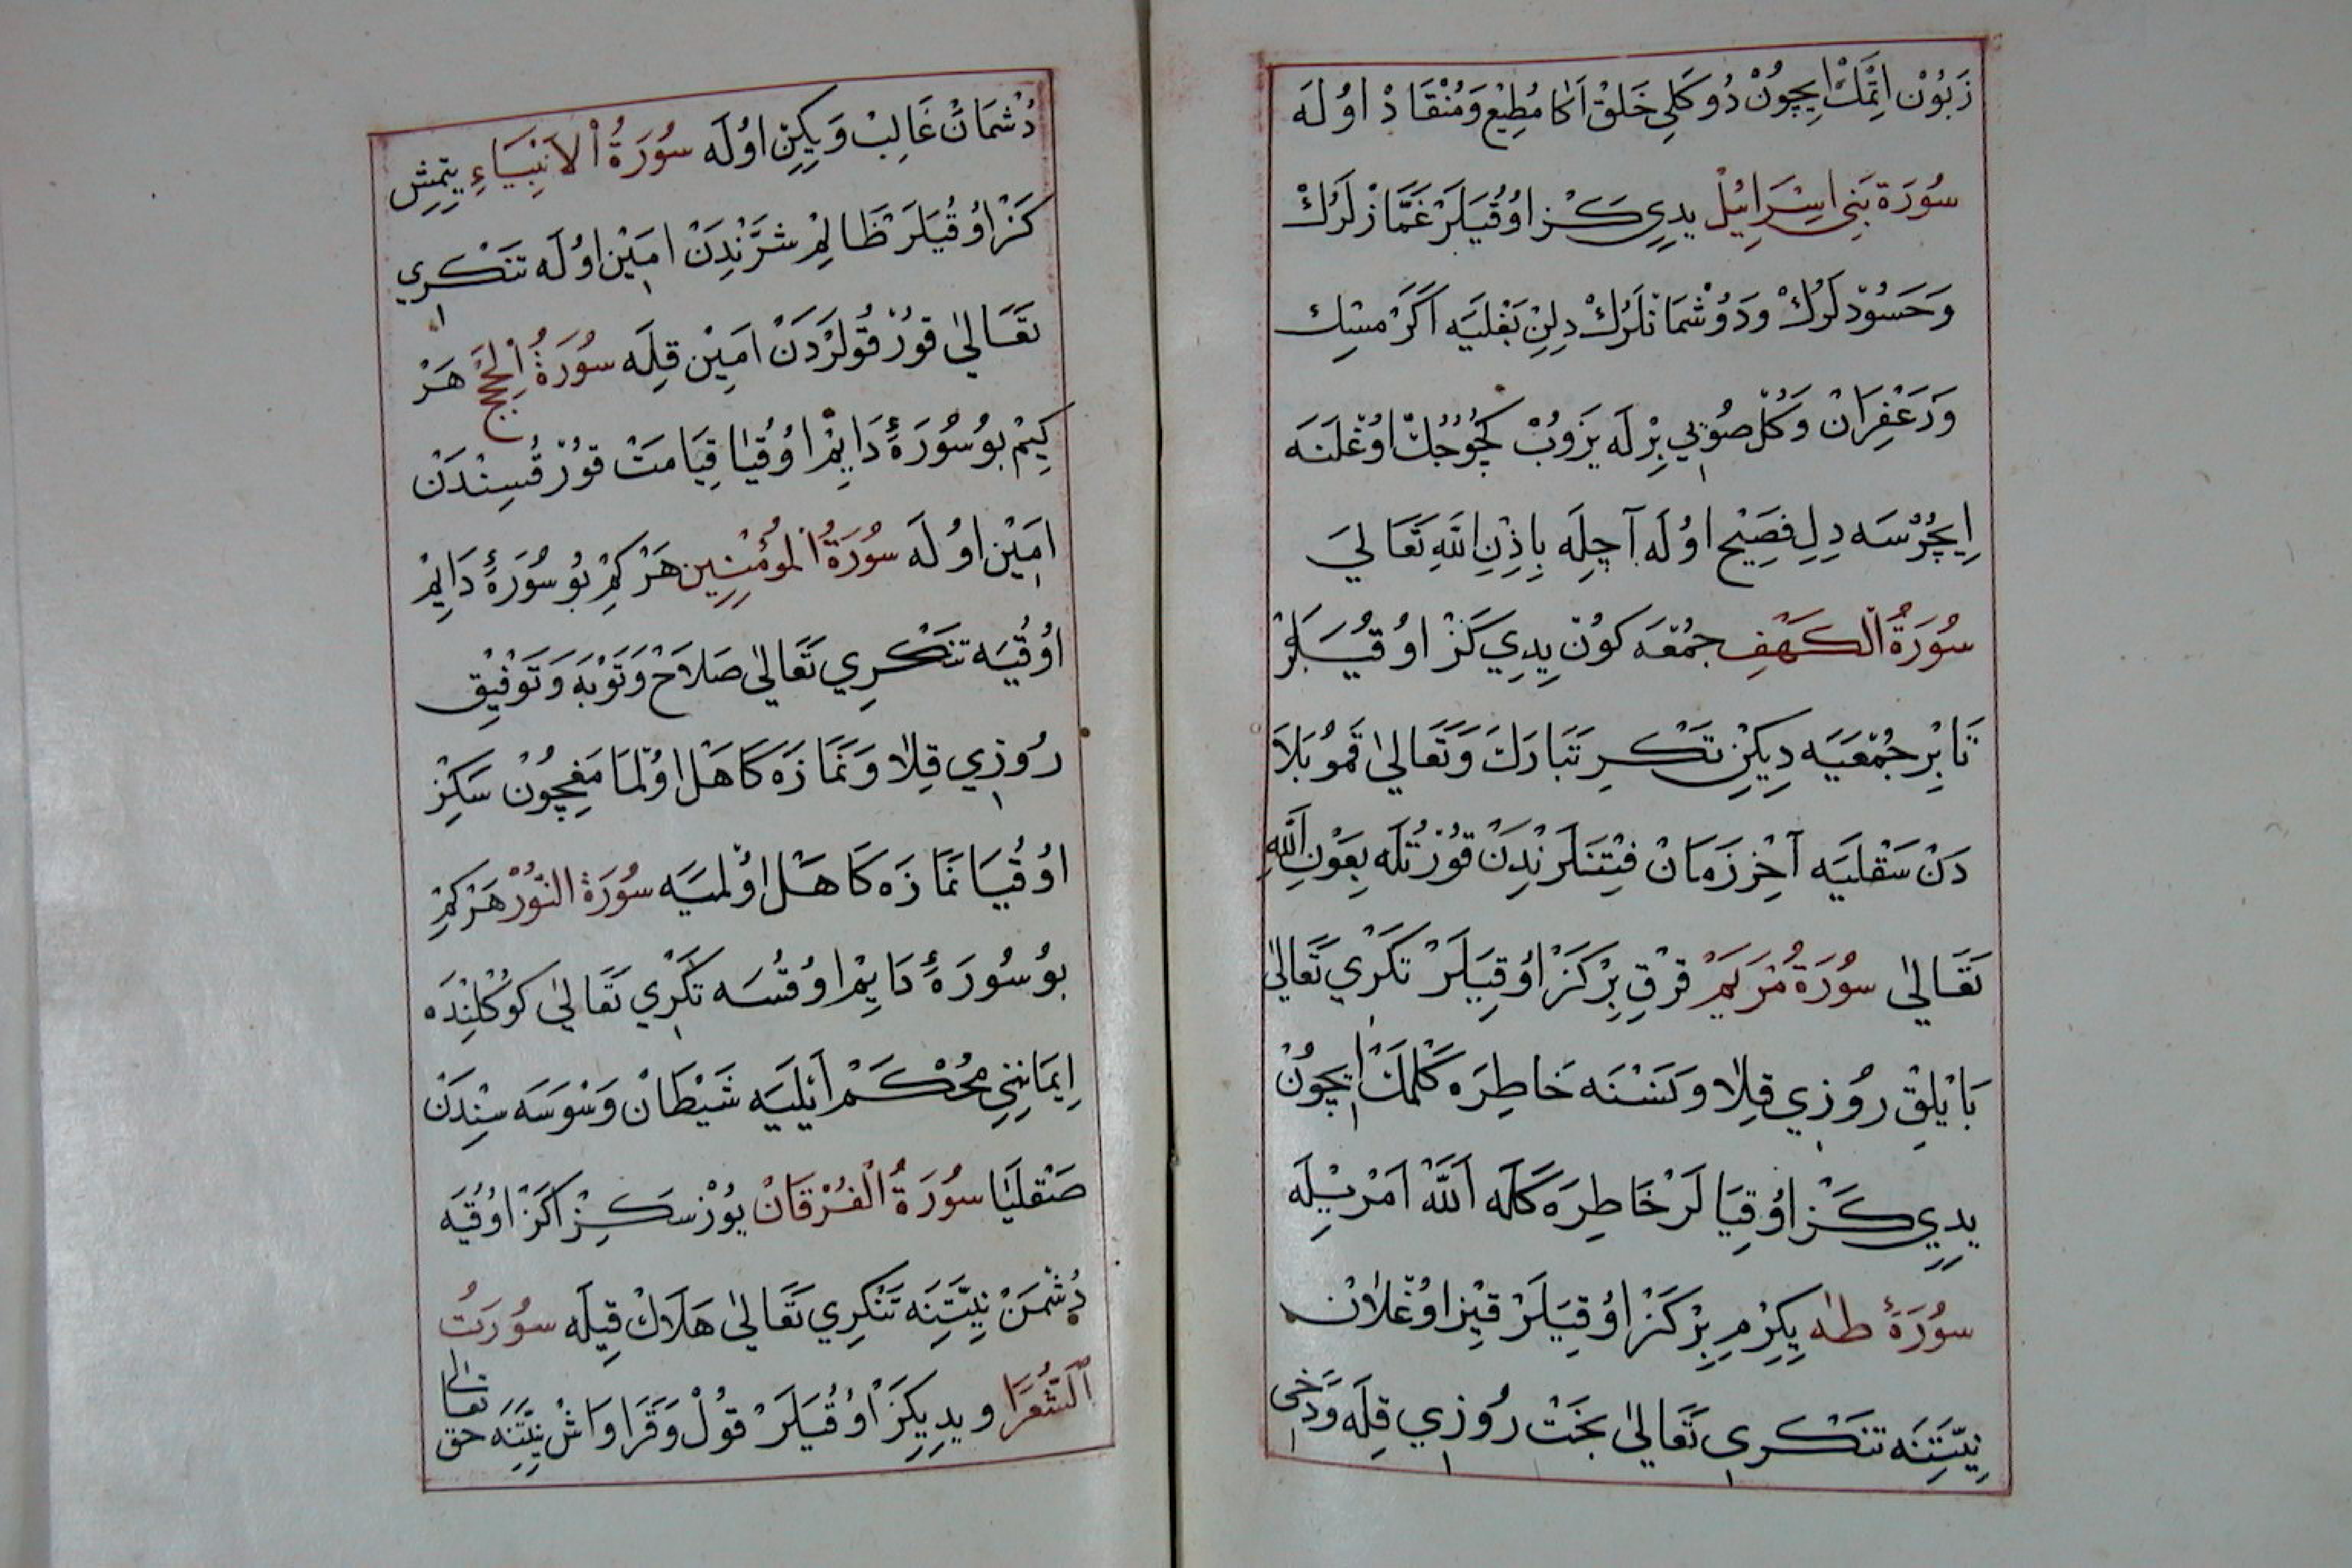 زَبُوْنْ اِتْمَكْ اِيچُوْنْ دُوكَلِي خَلقْ اَكَا مُطِيْع وَمُنْقَادْ اوُلَه
سُورَة بَنِي اِسْرَائِلْ يدِي كَز اوُقُيَلَرْ غَمَّازْلَرُكْ
وَحَسُودْلَرُكْ وَدُوْشْمَانْلَرُكْ دِلِنْ بَغْليَه اَكَرْ مسْك
وَزَعْفِرَانْ وَكُلْ صُوْيي بِرْلَه يَزوُبْ كچُوجُكْ اوُغْلَنَه
اِيچُرْسَه دِلِ فصِيْح اوُلَه آچِلَه بِاِذْنِ اللّٰهِ تَعَالىَ
سُورَةُ الْكَهْفِ جمُعَه كوُنْ يدِي كَزْ اوُقُيَلَرْ
تَا بِرْ جمُعَيَه دِيكِنْ تَكْرِ تَبَارَكَ وَتَعَاليٰ قَمُو بَلَا
دَنْ سَقْليَه آخِرْ زَمَانْ فِتْنَلَرنْدِنْ قوُرْتُلَه بِعَوْنِ اللّٰهِ
تَعَاليٰ سُورَةُ مَرْيَمْ قرْق بِرْ كَزْ اوُقِيَلَرْ تَكْرِي تَعَاليٰ
بَايْلِقْ رُوزِي قِلَا وَنَسْنَه خَاطِرَه كَلْمَكْ اِيچُونْ
يدِي كَز اوُقِيَا لَرْ خَاطِرَه كَلَه اَللّٰه اَمْرِيلَه
سُورَۀ طٰه يِكِرْمِ بِرْ كَزْ اوُقِيَلَرْ قِيز اوُغْلَانْ
نِيّتِنَه تنَكْرِي تَعَاليٰ بَخت رُوزِي قِلَه وَدَخِي
دُشْمَانْ غَالِبْ وَيكِنْ اوُلَه سُورَةُ الْاَنْبِيَاءِ يتمِش
كَزْ اوُقُيَلَرْ ظَالِمْ شرَّنْدِنْ اَمِيْن اوُلَه تنَكْرِي
تَعَاليٰ قورْقُولَرْدَنْ اَمِيْن قِلَه سُورَةُ الْحَجّ هَرْ
كِيمْ بوُ سُورَۀ دَايِمْ اوُقُيَا قِيَامَتْ قورْقُسِنْدَنْ
اَمِيْن اوُلَه سُورَةُ الْموُمِٔنِين هَرْ كِمْ بوُ سُورَۀ دَايِمْ
اوُقُيَه تنَكْرِي تَعَاليٰ صَلَاحْ وَتَوْبَه وَتَوْفِيْق
رُوزِي قِلَا وَنمَازَه كَاهَل اوُلْمَامَغِيچُونْ سَكِزْ
اوُقُيَا نمَازَه كَاهَلْ اوُلْميَه سُورَة النُّوْرْ هَرْ كِمْ
بوُ سُورَۀ دَايِمْ اوُقُسَه تَكْرِي تَعَاليٰ كوُكُلِنْدَه
اِيمَانِنِي مُحْكَمْ اَيْليَه شَيْطَانْ وَسْوَسَه سِنْدَنْ
صَقْلَيَا سُورَةُ الْفُرْقَانْ يوُزْ سكِزْ كَزْ اوُقُيَه
دُشْمَنْ نِيّتِنَه تَنْكِرِي تَعَاليٰ هَلَاكْ قِيلَه سُورَتُ
اَلشُّعَرَا ويدِي كَز اوُقُيَلَرْ قوُلْ وَقَرَاوَاشْ نِيّتِنَه حق تعالى